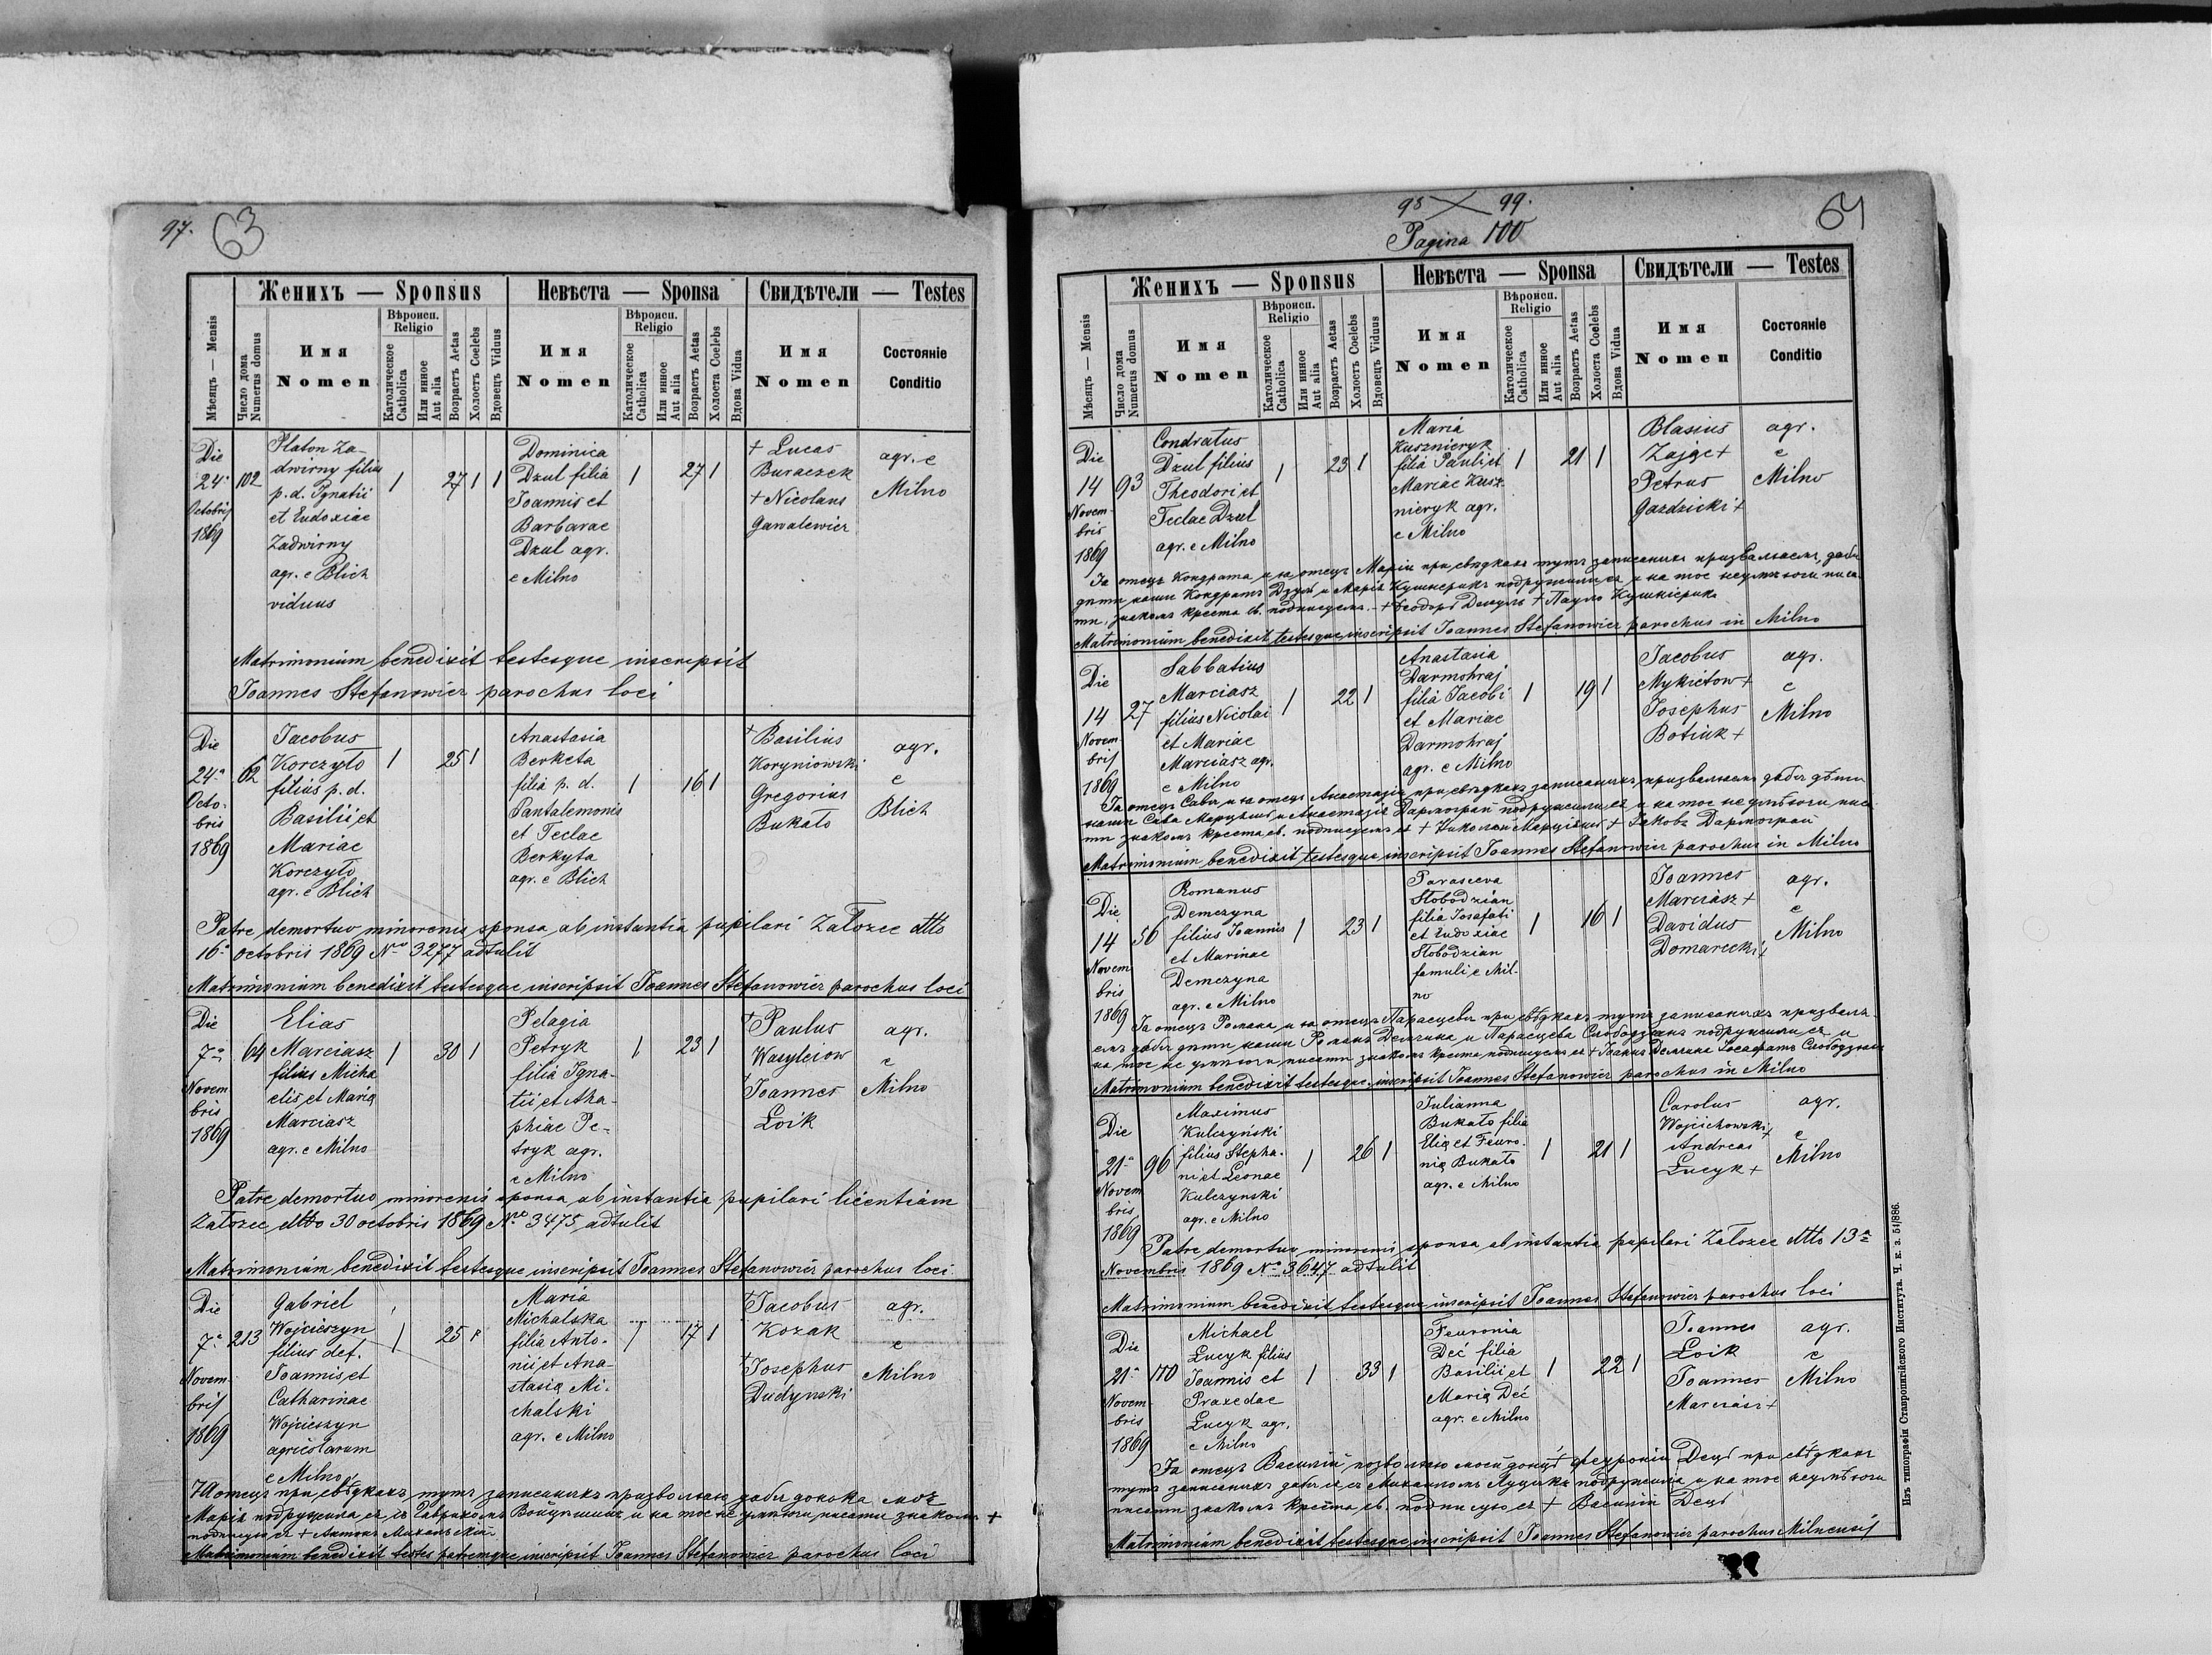 97. 63
Женихъ — Sponsus
Невѣста — Sponsa
Свидѣтели — Testes
Мѣсяцъ — Mensis
Число дома
Numerus domus
Имя
Nomen
Вѣроисп.
Religio
Католическое
Catholica
Или инное
Aut alia
Возрастъ Aetas
Холостъ Coelebs
Вдовецъ Viduus
Имя
Nomen
Вѣроисп.
Religio
Католическое
Catholica
Или инное
Aut alia
Возрастъ Aetas
Холоста Coelebs
Вдова Vidua
Имя
Nomen
Состояніе
Conditio
Die
24a
Octobris
1869
102
Platon Za-
dwirny filius
p. d. Ignatii
et Eudoxiae
Zadwirny
agr. e Blich
viduus
1 27 1 1
Dominica
Dzul filia
Joannis et
Barbarae
Dzul agr.
e Milno
1 27 1
+ Lucas
Buraczek
+ Nicolaus
Gawalewicz
agr. e
Milno
Matrimonium benedixit testesque inscripsit
Joannes Stefanowicz parochus loci
Die
24a
Octo-
bris
1869
62
Jacobus
Korczyło
filius p. d.
Basilii et
Mariae
Korczyło
agr. e Blich
1 25 1
Anastasia
Berketa
filia p. d.
Pantalemonis
et Teclae
Berkyta
agr. e Blich
1 16 1
+ Basilius
Koryniowski
Gregorius
Bukało
agr.
e
Blich
Patre demortuo minorenis sponsa ab instantia pupilari Załozce dtto
16a octobris 1869 No 3277 adtulit
Matrimonium benedixit testesque inscripsit Joannes Stefanowicz parochus loci
Die
7a
Novem
bris
1869
64
Elias
Marciasz
filius Micha
elis et Maria
Marciasz
agr. e Milno
1 30 1
Pelagia
Petryk
filia Igna-
tii et Aha-
phiae Pe-
tryk agr.
e Milno
1 23 1
+ Paulus
Wasylciow
+ Joannes
Łoik
agr.
e
Milno
Patre demortuo, minorenis sponsa ab instantia pupilari licentiam
Załozce dtto 30 octobris 1869 No 3475 adtulit
Matrimonium benedixit testesque inscripsit Joannes Stefanowicz parochus loci
Die
7a
Novem-
bris
1869
213
Gabriel
Wojcieszyn
filius def.
Joannis et
Catharinae
Wojcieszyn
agricolarum
e Milno
1 25 1
Maria
Michalska
filia Anto-
nii et Ana-
stasia Mi-
chalski
agr. e Milno
1 17 1
+ Jacobus
Kozak
+ Josephus
Dudynski
agr.
e
Milno
отецъ при свѣдкахъ тутъ записаныхъ призволяю дабы донька моя
Марія подружила ся съ Гавриломъ Войцишинъ и на тое не умѣючи писати знакомъ +
подписую ся + Антонъ Михальскій
Matrimonium benedixit testes patremque inscripsit Joannes Stefanowicz parochus loci
98 99.
Pagina 100
64
Женихъ — Sponsus
Невѣста — Sponsa
Свидѣтели — Testes
Мѣсяцъ — Mensis
Число дома
Numerus domus
Имя
Nomen
Вѣроисп.
Religio
Католическое
Catholica
Или инное
Aut alia
Возрастъ Aetas
Холостъ Coelebs
Вдовецъ Viduus
Имя
Nomen
Вѣроисп.
Religio
Католическое
Catholica
Или инное
Aut alia
Возрастъ Aetas
Холоста Coelebs
Вдова Vidua
Имя
Nomen
Состояніе
Conditio
Die
14
Novem-
bris
1869
93
Condratus
Dzul filius
Theodori et
Teclae Dzul
agr. e Milno
1 23 1
Maria
Kusznieryk
filia Pauli et
Mariae Kusz-
nieryk agr.
e Milno
1 21 1
Blasius
Zając +
Petrus
Gazdzicki +
agr.
e
Milno
Я отецъ Кондрата и я отецъ Маріи при свѣдкахъ тутъ записаныхъ призваляемъ, дабы
дѣти наши Кондратъ Дзуль и Марія Кушнерикъ подружили ся и на тое неумѣючи писа-
ти, знакомъ креста св. подписуемъ. - + Ѳеодоръ Дзюль + Павло Кушнерикъ
Matrimonium benedixit testesque inscripsit Joannes Stefanowicz parochus in Milno
Die
14
Novem
bris
1869
27
Sabbatius
Marciasz
filius Nicolai
et Mariae
Marciasz agr.
e Milno
1 22 1
Anastasia
Darmohraj
filia Jacobi
et Mariae
Darmohraj
agr. e Milno
1 19 1
Jacobus
Mykietow +
Josephus
Botiuk +
agr.
e
Milno
Я отецъ Савы и я отецъ Анастазіи при свѣдкахъ записаныхъ призваляемъ дабы дѣти
наши Сава Марцяшъ и Анастазія Дармограй подружили ся и на тое не умѣючи писа
ти знакомъ креста св. подписуемъ ся + Николай Марцяшъ + Яковъ Дармограй
Matrimonium benedixit testesque inscripsit Joannes Stefanowicz parochus in Milno
Die
14
Novem
bris
1869
56
Romanus
Demczyna
filius Joannis
et Marinae
Demczyna
agr. e Milno
1 23 1
Parasceva
Słobodzian
filia Josafati
et Eudoxiae
Słobodzian
famuli e Mil-
no
1 16 1
Joannes
Marciasz +
Davidus
Domarecki +
agr.
e
Milno
Я отецъ Романа и я отецъ Парасцевы при свѣдкахъ тутъ записаныхъ призваля-
емъ дабы дѣти наши Романъ Демчина и Парасцева Слободзянъ подружили ся и
на тое не умѣючи писати знакомъ креста подписуемъ ся + Іоаннъ Демчина Іосафатъ Слободзянъ
Matrimonium benedixit testesque inscripsit Joannes Stefanowicz parochus in Milno
Die
21a
Novem
bris
1869
96
Maximus
Kulczyński
filius Stepha-
ni et Leonae
Kulczynski
agr. e Milno
1 26 1
Julianna
Bukało filia
Elia et Feuro-
nia Bukało
agr. e Milno
1 21 1
Carolus
Wojcichowski +
Andreas
Łucyk +
agr.
e
Milno
Patre demortuo minorenis sponsa ab instantia pupilari Załozce dtto 13a
Novembris 1869 No 3647 adtulit
Matrimonium benedixit testesque inscripsit Joannes Stefanowicz parochus loci
Die
21a
Novem-
bris
1869
170
Michael
Łucyk filius
Joannis et
Praxedae
Łucyk agr.
e Milno
1 33 1
Feuronia
Deć filia
Basilii et
Maria Deć
agr. e Milno
1 22 1
Joannes
Łoik
Joannes
Marciasz +
agr.
e
Milno
Я отецъ Василій позволяю моей доньцѣ Феуроніи Децъ при свѣдкахъ
тутъ записаныхъ дабы ся съ Михаиломъ Луцикъ подружила и на тое неумѣючи
писати знакомъ креста св. подписую ся + Василій Децъ
Matrimonium benedixit testesque inscripsit Joannes Stefanowicz parochus Milnensis
Изъ типографіи Ставропигійского Института. Ч. к. з. 51/886.